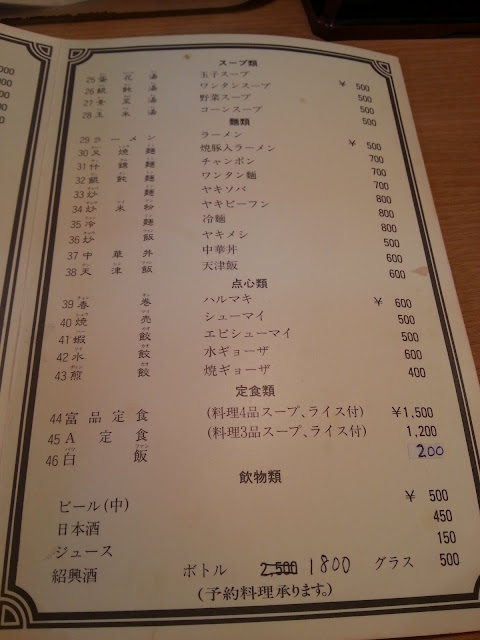 スープ類
25 蛋花湯 玉子スープ ¥ 500
26 餛飩湯 ワンタンスープ 500
27 素菜湯 野菜スープ 500
28 玉米湯 コーンスープ 500
麺類
29 ラーメン ラーメン ¥ 500
30 叉焼麺 焼豚入ラーメン 700
31 什錦麺 チャンポン 700
32 餛飩麺 ワンタン麺 700
33 炒麺 ヤキソバ 800
34 炒米粉 ヤキビーフン 800
35 冷麺 冷麺 800
36 炒飯 ヤキメシ 500
37 中華丼 中華丼 600
38 天津飯 天津飯 600
点心類
39 春巻 ハルマキ ¥ 600
40 焼売 シューマイ 500
41 蝦餃 エビシューマイ 500
42 水餃 水ギョーザ 600
43 煎餃 焼ギョーザ 400
定食類
44 富品定食 (料理4品スープ、ライス付) ¥1,500
45 A定食 (料理3品スープ、ライス付) 1,200
46 白飯 200
飲物類
ビール(中) ¥ 500
日本酒 450
ジュース 150
紹興酒 ボトル 2,500 1800 グラス 500
(予約料理承ります。)